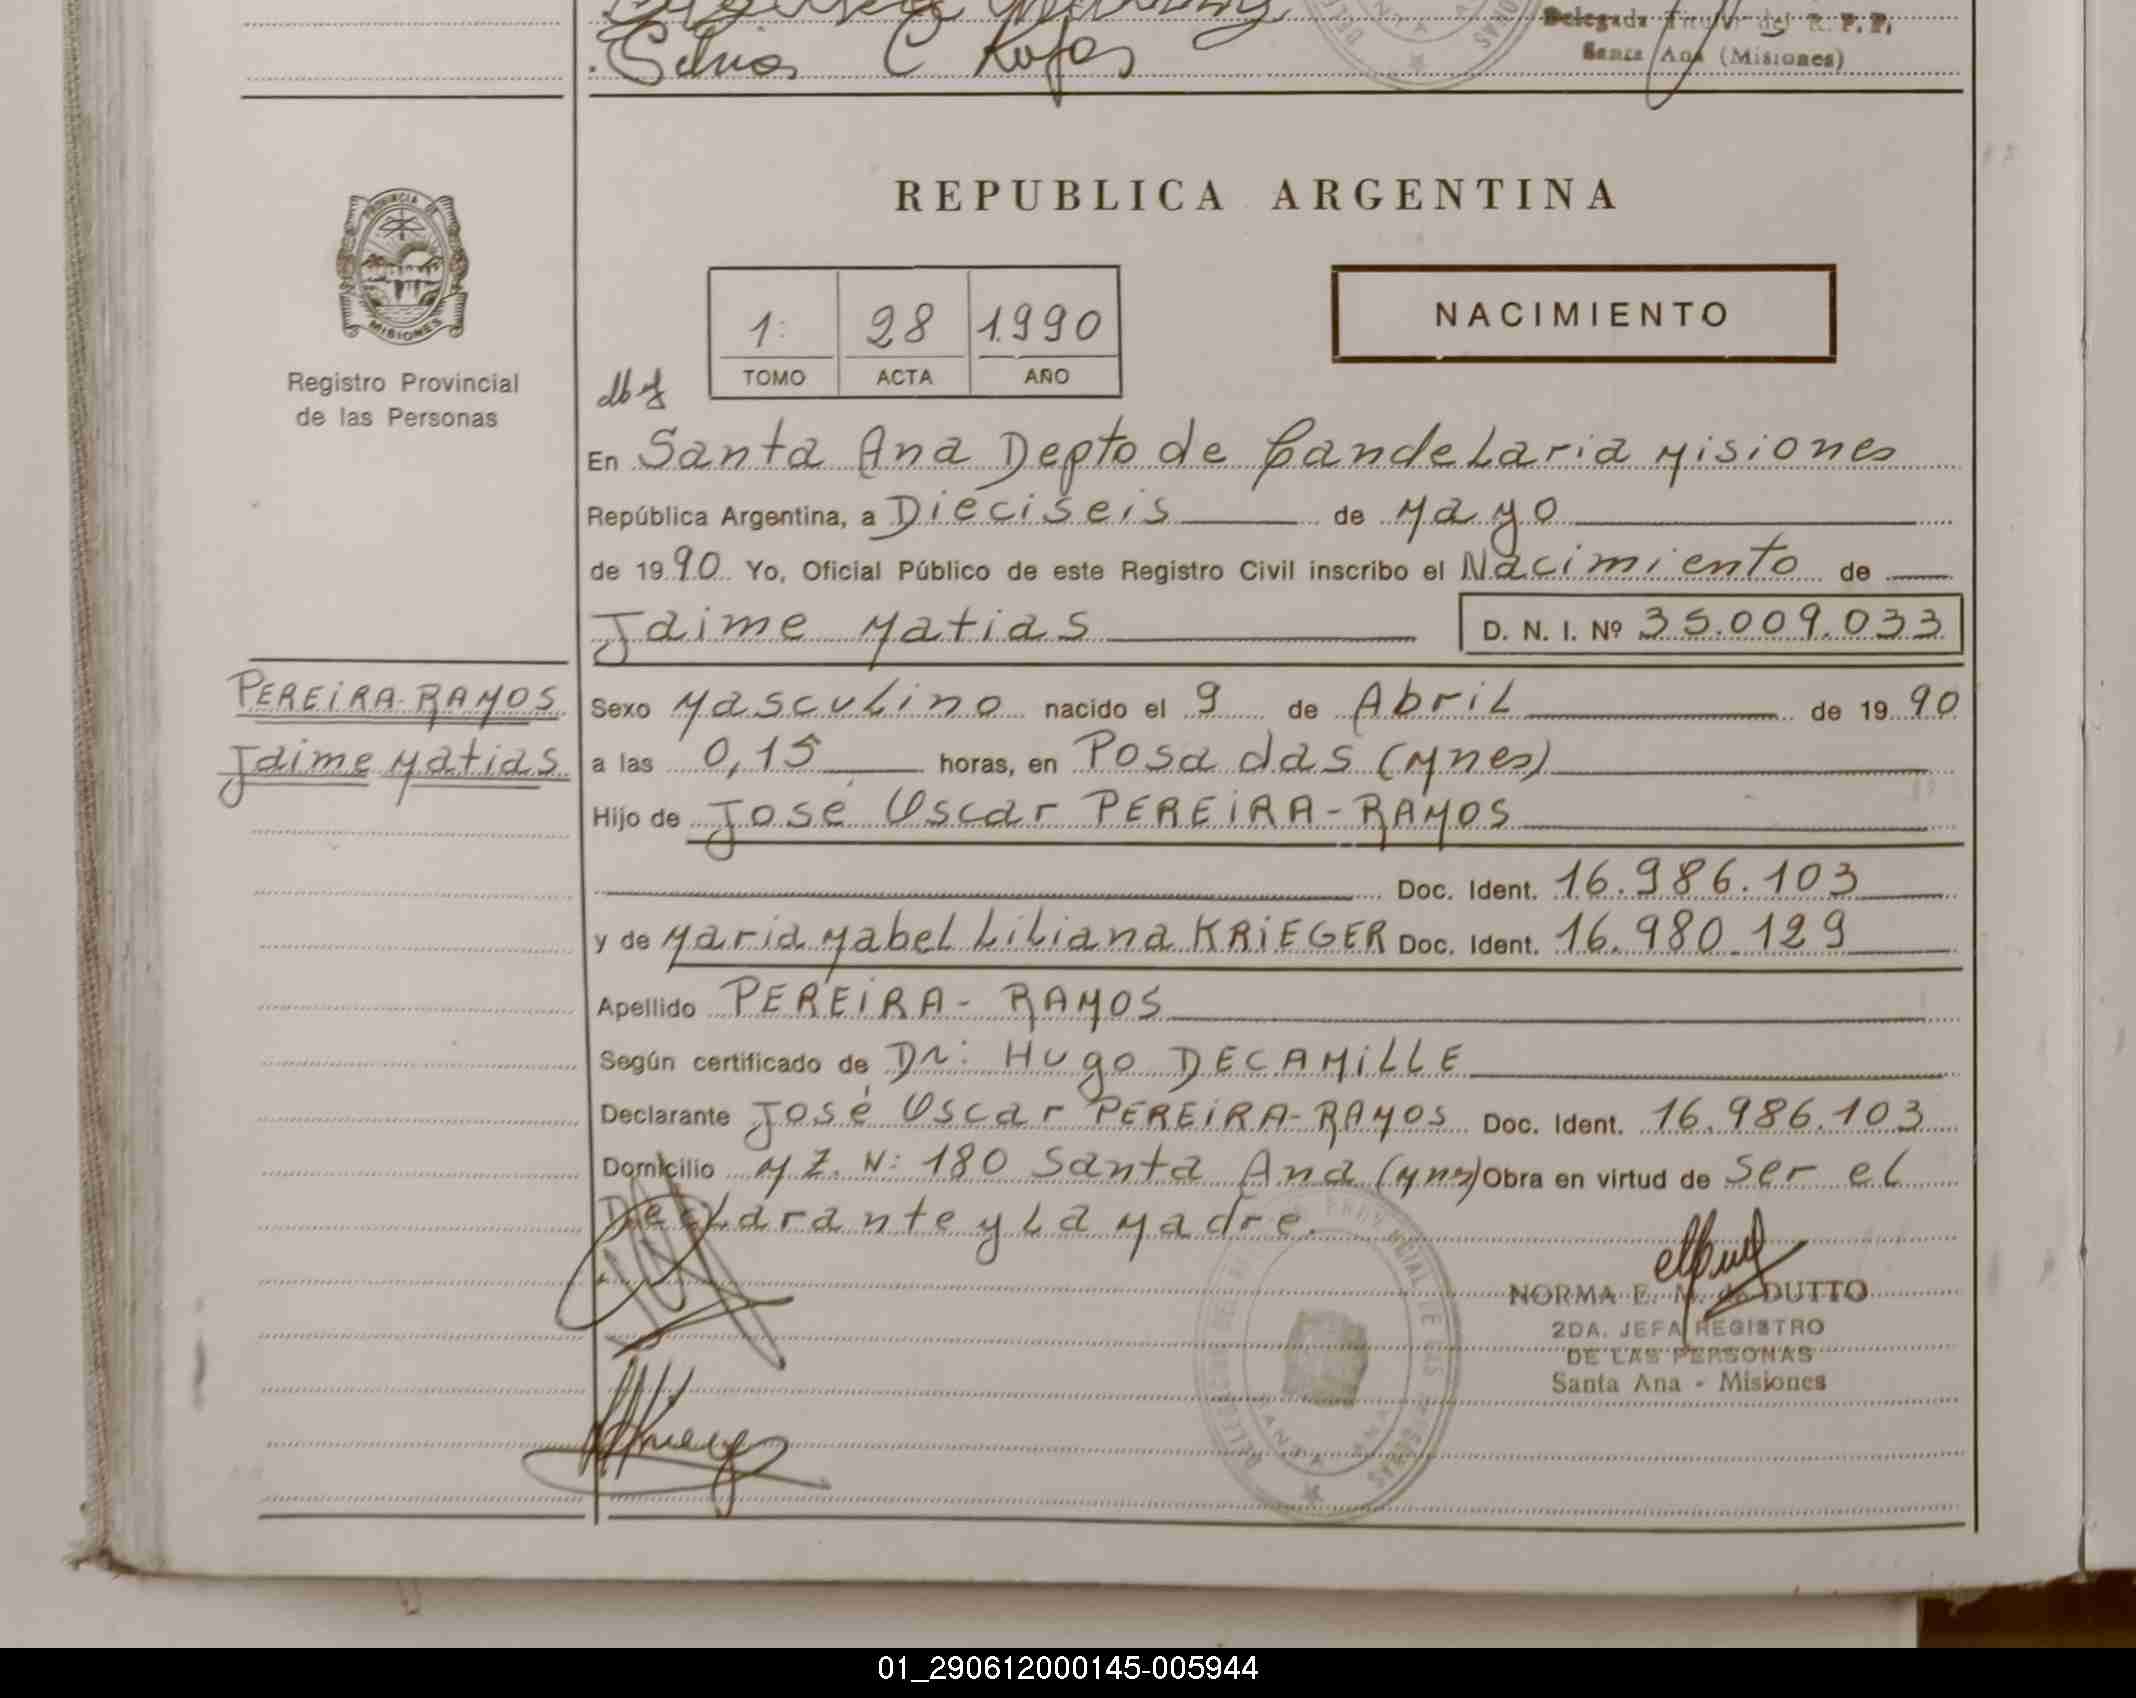 Silvia C Rojas
Delegada Titular del R. P. P.
Santa Ana (Misiones)
PROVINCIA DE
MISIONES
Registro Provincial
de las Personas
REPUBLICA ARGENTINA
1: 28 1.990
TOMO ACTA AÑO
NACIMIENTO
En Santa Ana Depto de Candelaria Misiones
República Argentina, a Dieciseis de Mayo
de 1990 Yo, Oficial Público de este Registro Civil inscribo el Nacimiento de
Jaime Matias D. N. I. Nº 35.009.033
PEREIRA-RAMOS
Jaime Matias
Sexo Masculino nacido el 9 de Abril de 1990
a las 0,15 horas, en Posadas (Mnes)
Hijo de José Oscar PEREIRA-RAMOS
Doc. Ident. 16.986.103
y de Maria Mabel Liliana KRIEGER Doc. Ident. 16.980.129
Apellido PEREIRA-RAMOS
Según certificado de Dr: Hugo DECAMILLE
Declarante José Oscar PEREIRA-RAMOS Doc. Ident. 16.986.103
Domicilio MZ. N: 180 Santa Ana (Mns) Obra en virtud de ser el
Declarante y La Madre.
NORMA E. M. de DUTTO
2DA. JEFA REGISTRO
DE LAS PERSONAS
Santa Ana - Misiones
SANTA ANA
01_290612000145-005944